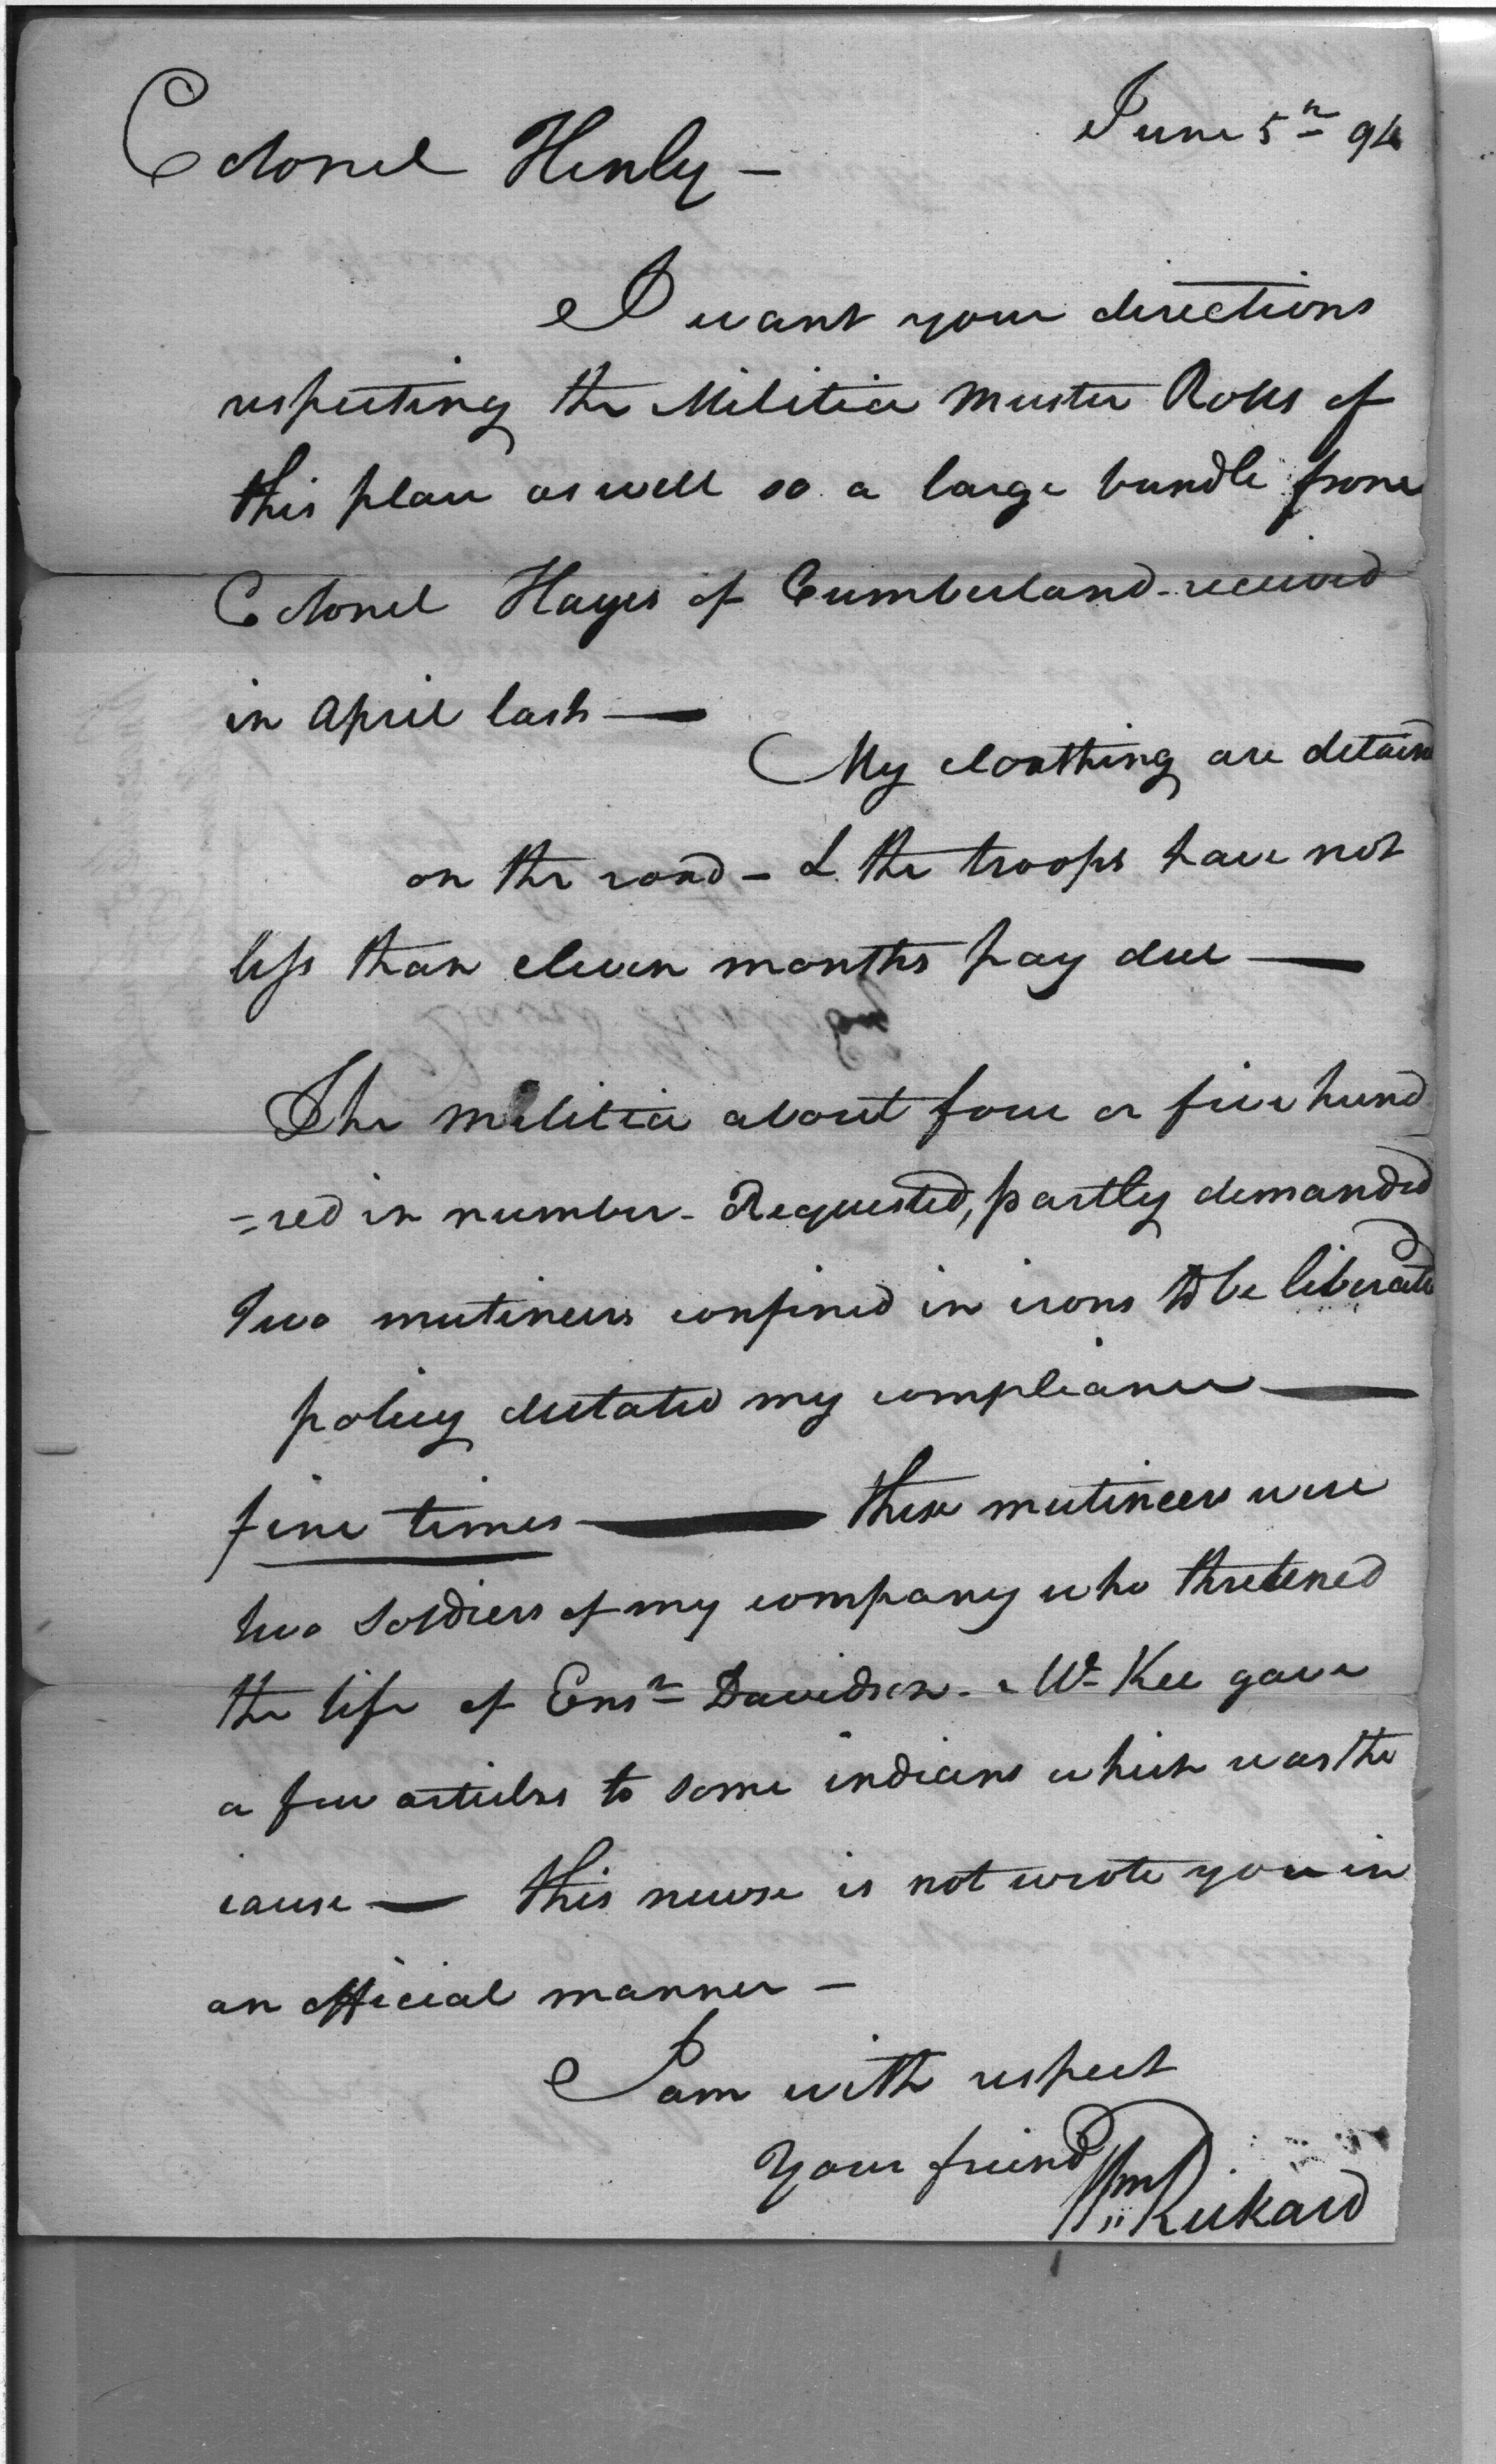 June 5th 94
Colonel Henly —
I want your directions
respecting the Militia Muster Rolls of
this place as well as a large bundle from
Colonel Hayes of Cumberland - received
in April last —
My cloathing are detain
on the road - & the troops have not
less than eleven months pay due —
The militia about four or five hund
=red in number - Requested, partly demanded
two mutineers confined in irons to be liberated
policy dictated my compliance —
fine times — these mutineers were
two soldiers of my company who thretened
the life of Ensn Davidson - Kee gave
a few articles to some indians which was the
cause — this newse is not wrote you in
an official manner —
I am with respect
Your friend
Wm Rickard